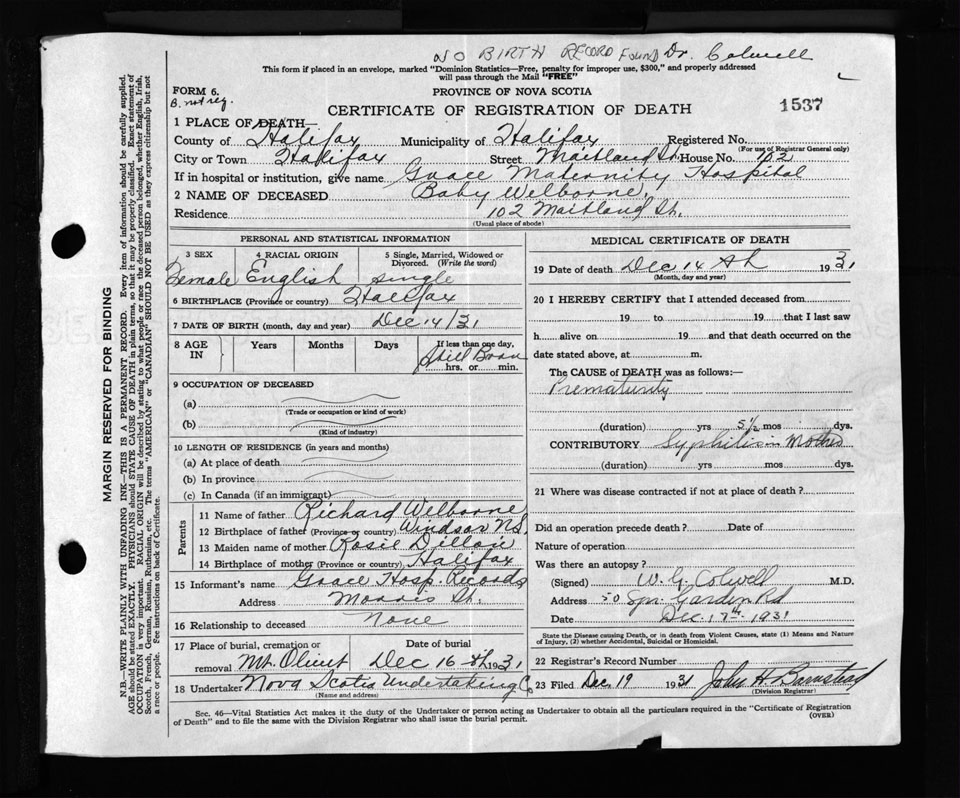 NO BIRTH RECORD FOUND Dr. Colwell
This form if placed in an envelope, marked "Dominion Statistics—Free, penalty for improper use, $300," and properly addressed
will pass through the Mail "FREE"
FORM 6.
PROVINCE OF NOVA SCOTIA
B. not reg.
CERTIFICATE OF REGISTRATION OF DEATH
1537
1 PLACE OF DEATH—
County of Halifax Municipality of Halifax Registered No.
(For use of Registrar General only)
City or Town Halifax Street Maitland St. House No. 102
If in hospital or institution, give name Grace Maternity Hospital
2 NAME OF DECEASED Baby Welboone.
Residence 102 Maitland St.
(Usual place of abode)
PERSONAL AND STATISTICAL INFORMATION
3 SEX 4 RACIAL ORIGIN 5 Single, Married, Widowed or Divorced. (Write the word)
Female English single
6 BIRTHPLACE (Province or country) Halifax
7 DATE OF BIRTH (month, day and year) Dec 14/31
8 AGE IN Years Months Days If less than one day,
Still Born
hrs. or min.
9 OCCUPATION OF DECEASED
(a)
(Trade or occupation or kind of work)
(b)
(Kind of industry)
10 LENGTH OF RESIDENCE (in years and months)
(a) At place of death
(b) In province
(c) In Canada (if an immigrant)
Parents
11 Name of father Richard Welboone
12 Birthplace of father (Province or country) Windsor N.S.
13 Maiden name of mother Rosie Dillon
14 Birthplace of mother (Province or country) Halifax
15 Informant's name Grace Hosp. Records
Address Morris St.
16 Relationship to deceased None
17 Place of burial, cremation or removal Mt. Olivet Date of burial Dec 16th 1931
18 Undertaker Nova Scotia Undertaking Co
(Name and address)
MEDICAL CERTIFICATE OF DEATH
19 Date of death Dec 14th 1931
(Month, day and year)
20 I HEREBY CERTIFY that I attended deceased from
19 to 19 that I last saw
h alive on 19 and that death occurred on the
date stated above, at m.
The CAUSE of DEATH was as follows:—
Prematurity
(duration) yrs 5½ mos dys.
CONTRIBUTORY Syphilis in Mother
(duration) yrs mos dys.
21 Where was disease contracted if not at place of death?
Did an operation precede death? Date of
Nature of operation
Was there an autopsy?
(Signed) W. G. Colwell M.D.
Address 50 Spr. Garden Rd
Date Dec. 17th 1931
State the Disease causing Death, or in death from Violent Causes, state (1) Means and Nature
of Injury, (2) whether Accidental, Suicidal or Homicidal.
22 Registrar's Record Number
23 Filed Dec. 19 1931 John H Barnstead
(Division Registrar)
Sec. 46—Vital Statistics Act makes it the duty of the Undertaker or person acting as Undertaker to obtain all the particulars required in the "Certificate of Registration
of Death" and to file the same with the Division Registrar who shall issue the burial permit.
(OVER)
MARGIN RESERVED FOR BINDING
N.B.—WRITE PLAINLY WITH UNFADING INK—THIS IS A PERMANENT RECORD. Every item of information should be carefully supplied.
AGE should be stated EXACTLY. PHYSICIANS should STATE CAUSE OF DEATH in plain terms, so that it may be properly classified. Exact statement of
OCCUPATION is very important. RACIAL ORIGIN will be described by stating to what people or race the deceased person belonged, whether English, Irish,
Scotch, French, German, Russian, Ruthenian, etc. The terms "AMERICAN" or "CANADIAN" SHOULD NOT BE USED as they express citizenship but not
a race or people. See instructions on back of Certificate.